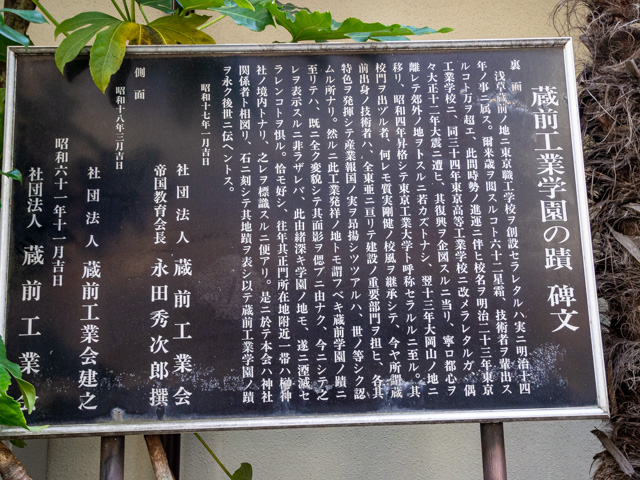 蔵前工業学園の蹟 碑文
裏面
浅草蔵前ノ地ニ東京職工学校ヲ創設セラレタルハ実ニ明治十四
年ノ事ニ属ス。爾来歳ヲ閲スルコト六十二星霜、技術者ヲ輩出ス
ルコト万ヲ超エ、此間時勢ノ進運ニ伴ヒ校名ヲ明治二十三年東京
工業学校ニ、同三十四年東京高等工業学校ニ改メラレタルガ、偶
々大正十二年大震ニ遭ヒ、其復興ヲ企図スルニ当リ、寧ロ都心ヲ
離レテ郊外ノ地ヲトスルニ若カズトナシ、翌十三年大岡山ノ地ニ
移リ、昭和四年昇格シテ東京工業大学ト呼称セラルルニ至ル。其
校門ヲ出ヅル者、何レモ質実剛健ノ校風ヲ継承シテ、今ヤ所謂蔵
前出身ノ技術者ハ、全東亜ニ亘リテ建設ノ重要部門ヲ担ヒ、各其
特色ヲ発揮シテ産業報国ノ実ヲ昂揚シツツアルハ、世ノ等シク認
ムル所ナリ。然ルニ此工業発祥ノ地トモ謂フベキ蔵前学園ノ蹟ニ
至リテハ、既ニ全ク変貌シテ其面影ヲ偲ブニ由ナク、今ニシテ之
レヲ表示スルニ非ラザレバ、此由緒深キ学園ノ地モ、遂ニ湮滅セ
ランレコトヲ惧ル。恰モ好シ、往年其正門所在地附近一帯ハ榊神
社ノ境内トナリ、之レヲ標識スルニ便アリ。是ニ於テ本会ハ神社
関係者ト相図リ、石ニ刻シテ其地蹟ヲ表シ以テ蔵前工業学園ノ蹟
ヲ永ク後世ニ伝ヘントス。
昭和十七年一月吉日
社団法人 蔵前工業会
帝国教育会長 永田秀次郎 撰
側面
昭和十八年三月吉日
社団法人 蔵前工業会建之
昭和六十一年十一月吉日
社団法人 蔵前工業会